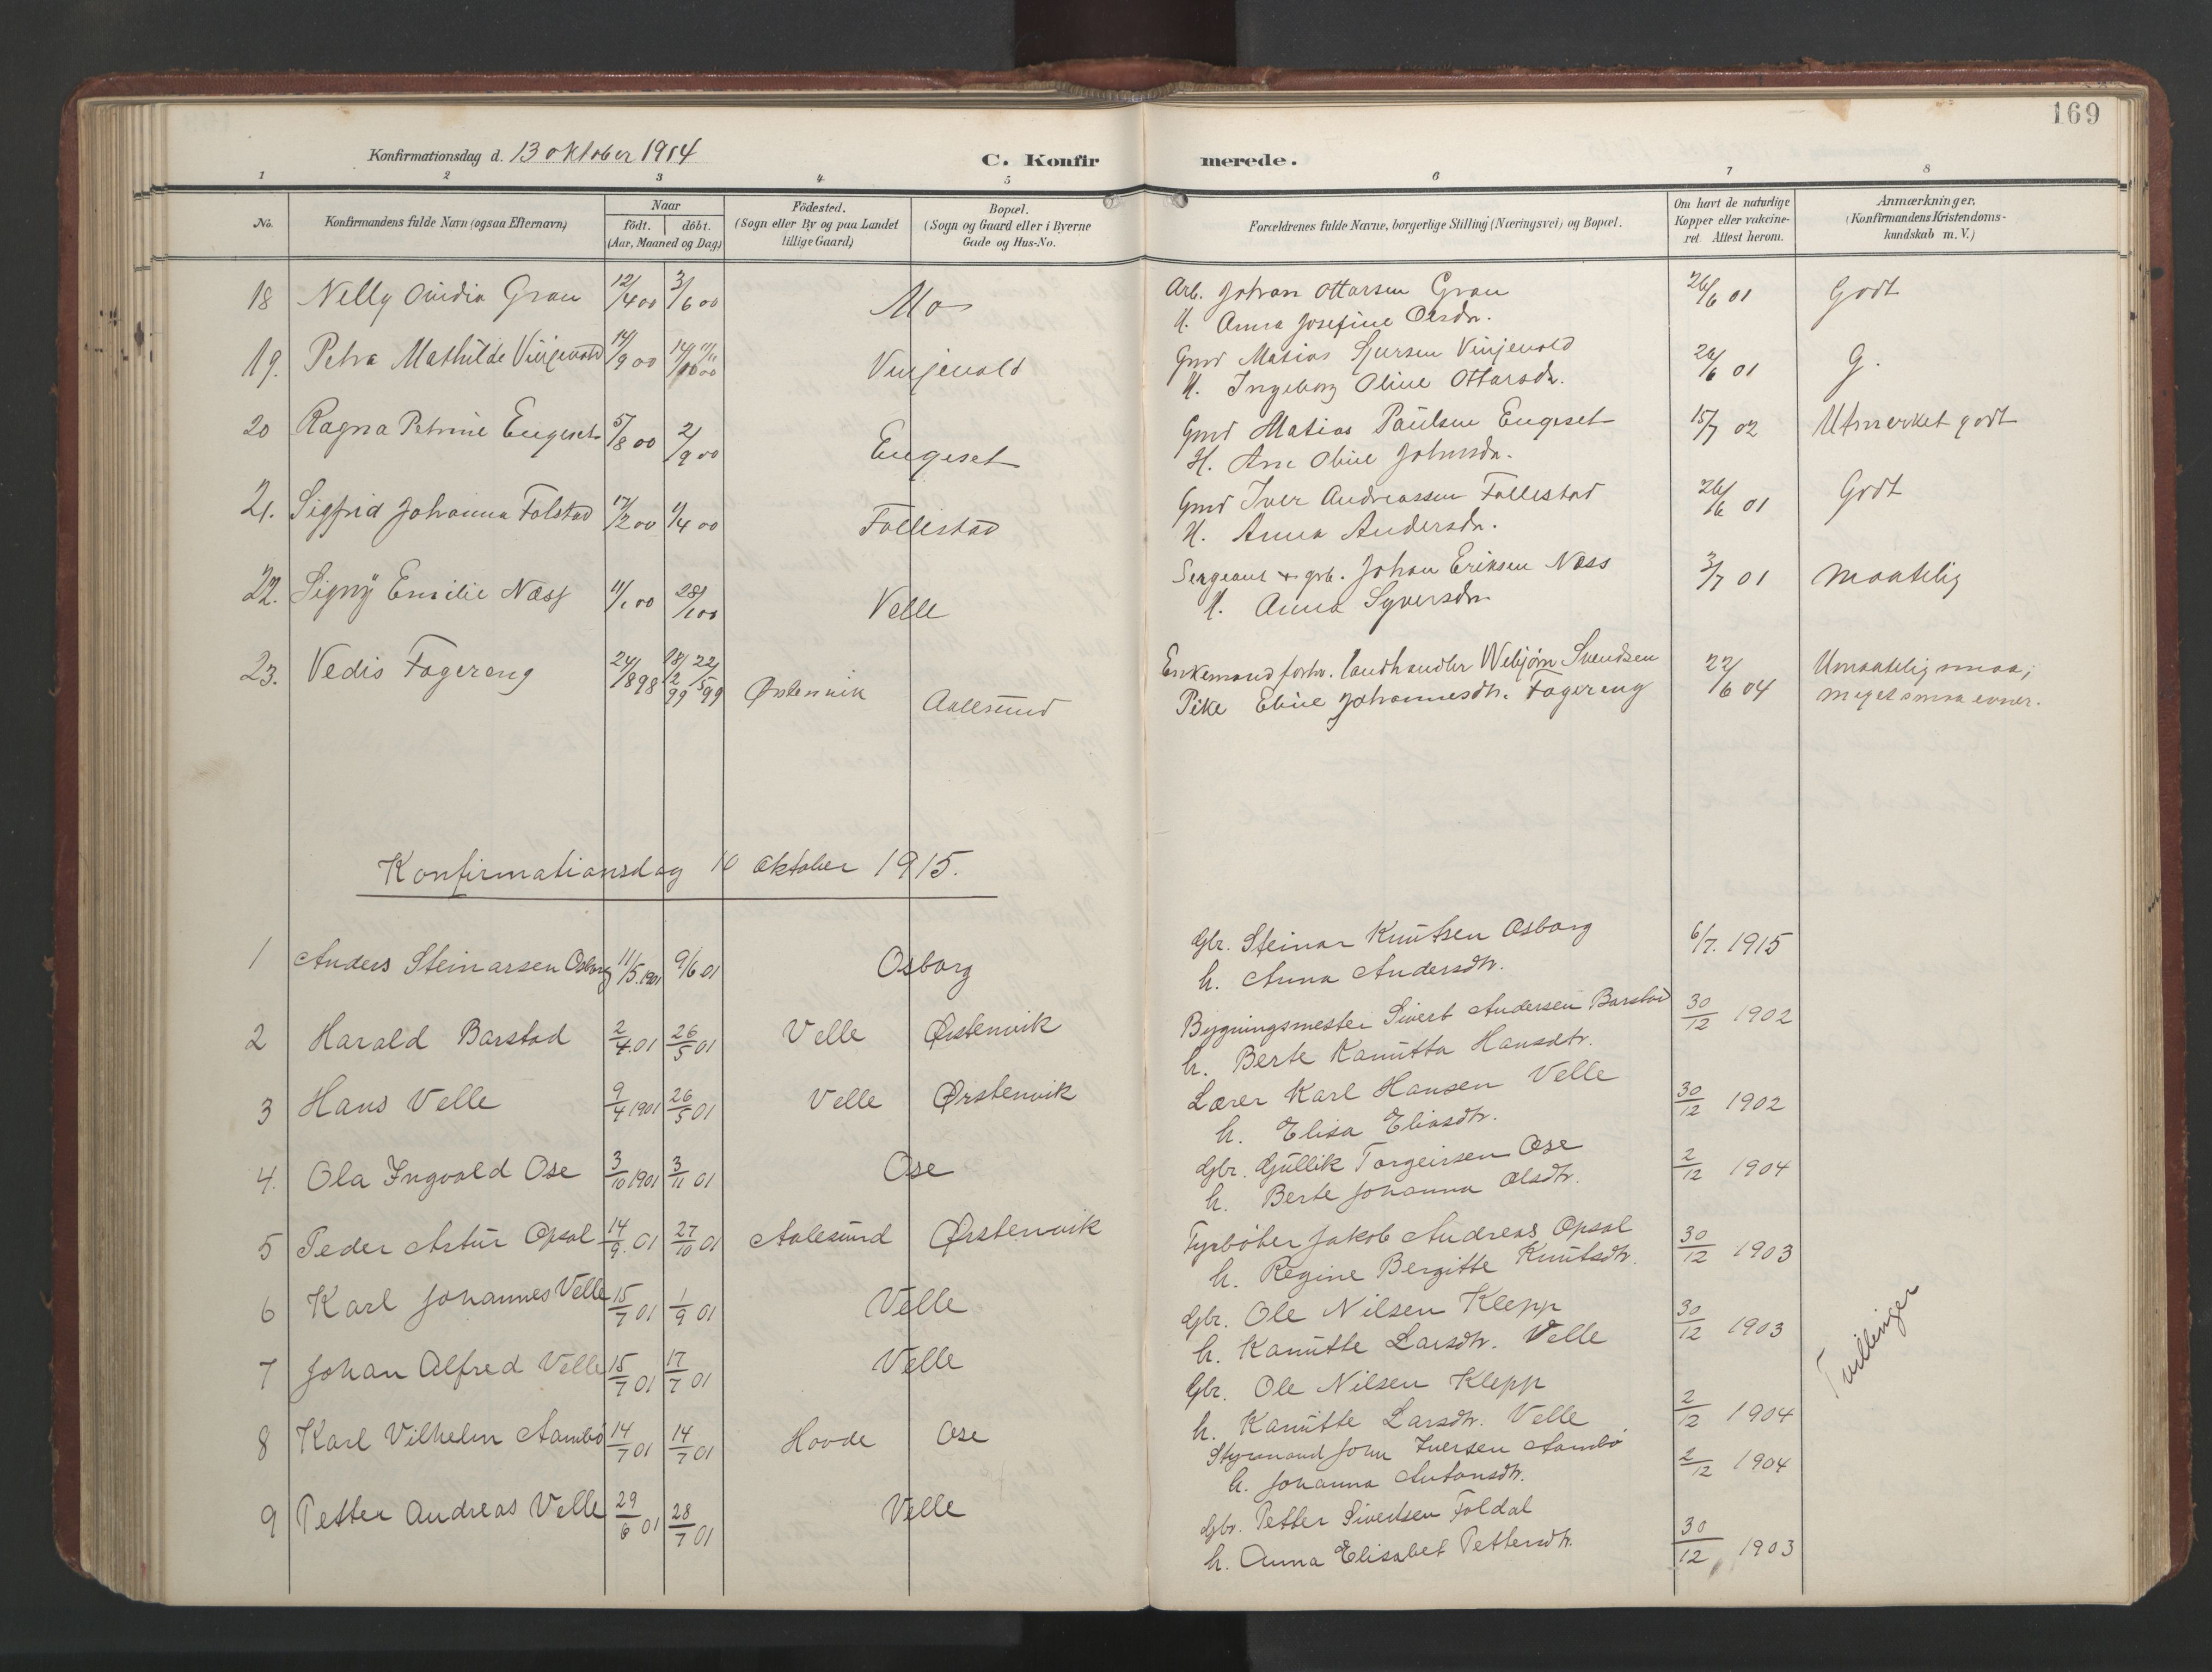 169
Konfirmationsdag d. 13 oktober 1914
C. Konfirmerede.
1 2 3 4 5 6 7 8
No.
Konfirmandens fulde Navn (ogsaa Efternavn)
Naar
födt. döbt.
(Aar, Maaned og Dag)
Födested.
(Sogn eller By og paa Landet
tillige Gaard)
Bopæl.
(Sogn og Gaard eller i Byerne
Gade og Hus-No.
Forældrenes fulde Navne, borgerlige Stilling (Næringsvei) og Bopæl.
Om havt de naturlige
Kopper eller vakcine-
ret Attest herom.
Anmærkninger.
(Konfirmandens Kristendoms-
kundskab m. V.)
18 Nelly Ovidia Grau 12/4 00 3/6 00 Mo Arb. Johan Ottarsen Grau 26/6 01 Godt
H. Anna Josefine Olsdr.
19. Petra Mathilde Vinjevold 14/9 00 Vinjevold Gmd Matias Sjursen Vinjevold 26/6 01 G.
H. Ingeborg Oline Ottarsdr.
20 Ragna Petrine Engeset 5/8 00 2/9 00 Engeset Gmd Matias Paulsen Engeset 15/7 02 Utmerket godt
H. Ane Oline Johnsdr.
21. Sigfrid Johanna Folstad 17/2 00 1/4 00 Follestad Gmd Iver Andreassen Follestad 26/6 01 Godt
H. Anna Andersdr.
22. Signy Emilie Næss 11/1 00 28/1 00 Velle Sergeant + grb. Johan Eriksen Næss 3/7 01 maatelig
H. Anna Syversdr.
23. Vedis Fagereng 24/8 98 18/2 99 22/5 99 Ørstenvik Aalesund Enkemand forhv. landhandler Webjørn Svendsen 22/6 04 Umaatelig smaa;
Pike Eline Johannesdtr. Fagereng meget smaa evner.
Konfirmationsdag 10 oktober 1915.
1 Anders Steinarsen Osborg 11/5. 1901 9/6 01 Osborg Gbr. Steinar Knutsen Osborg 6/7. 1915
h. Anna Andersdtr.
2 Harald Barstad 2/4. 01 26/5 01 Velle Ørstenvik Bygningsmester Sivert Andersen Barstad 30/12 1902
h. Berte Kanutta Hansdtr.
3 Hans Velle 9/4 1901 26/5 01 Velle Ørstenvik Lærer Karl Hansen Velle 30/12 1902
h. Elisa Eliasdtr.
4. Ola Ingvald Ose 3/10 1901 3/11 01 Ose Gbr. Gullik Torgeirsen Ose 2/12 1904
h. Berte Johanna Olsdtr.
5 Peder Artur Opsal 14/9. 01 27/10 01 Aalesund Ørstenvik Fyrbøter Jakob Andreas Opsal 30/12 1903
h. Regine Bergitte Knutsdtr.
6 Karl Johannes Velle 15/7 01 1/9 01 Velle Gbr. Ole Nilsen Klepp 30/12 1903
h. Kanutte Larsdtr. Velle
Tvillinger
7 Johan Alfred Velle 15/7 01 17/7 01 Velle Gbr. Ole Nilsen Klepp 2/12 1904
h. Kanutte Larsdtr. Velle
8 Karl Vilhelm Aambø 14/7 01 14/7 01 Hovde Ose Styrmand John Iversen Aambø 2/12 1904
h. Johanna Antonsdtr.
9 Petter Andreas Velle 29/6 01 28/7 01 Velle Gbr. Petter Sivertsen Foldal 30/12 1903
h. Anna Elisabet Pettersdtr.